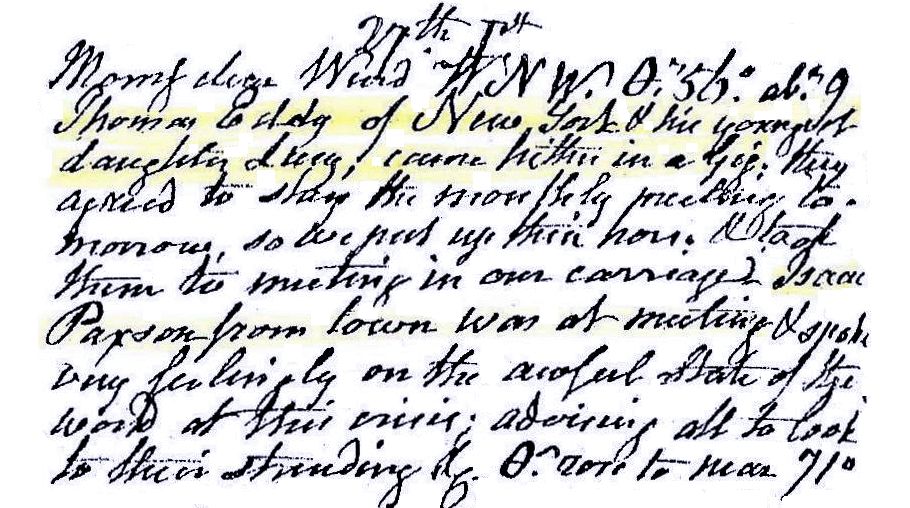 27th 1st
Morng clear Wind WNW. Θr 56° abt 9
Thomas Eddy of New York & his youngest
daughter Lucy, came hither in a Gig; they
agreed to stay the monthly meeting to-
morrow, so we put up their horse & took
them to meeting in our carriage. Isaac
Paxson from town was at meeting & spoke
very feelingly on the awful state of the
world at this crisis; advising all to look
to their standing &c. Θr rose to near 71°